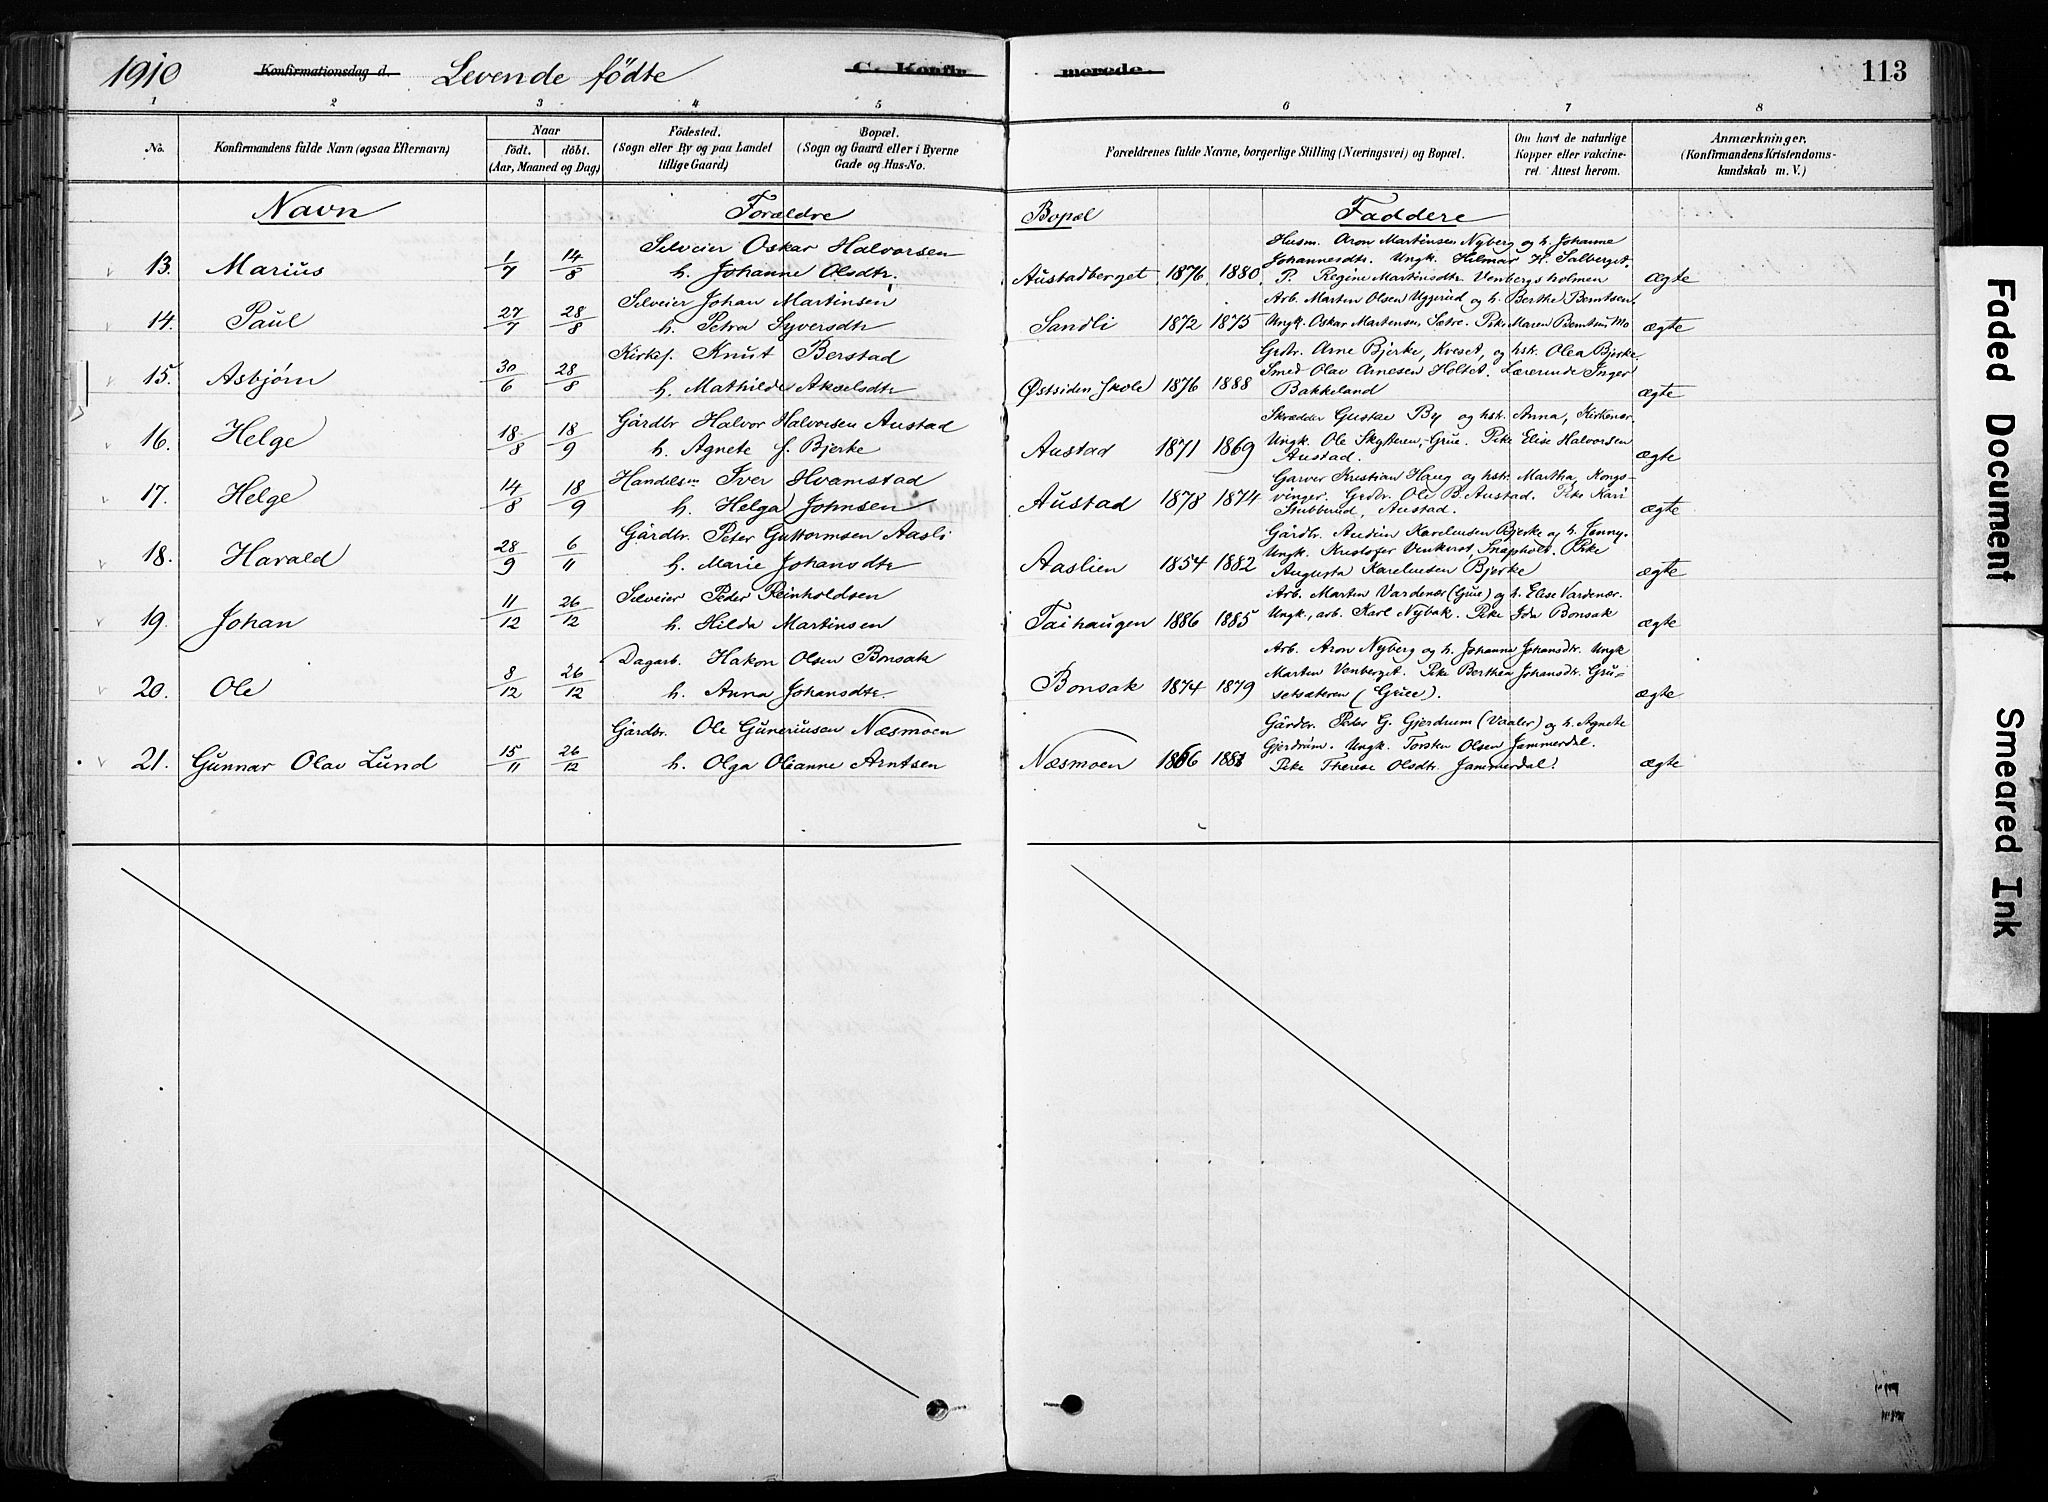 1910 Konfirmationsdag d. Levende fødte C. Konfir merede. 113
1 2 3 4 5 6 7 8
No. Konfirmandens fulde Navn (ogsaa Efternavn) Naar födt. döbt. (Aar, Maaned og Dag) Födested. (Sogn eller By og paa Landet tillige Gaard) Bopæl. (Sogn og Gaard eller i Byerne Gade og Hus-No. Forældrenes fulde Navne, borgerlige Stilling (Næringsvei) og Bopæl. Om havt de naturlige Kopper eller vakcineret. Attest herom. Anmærkninger. (Konfirmandens Kristendomskundskab m. V.)
Navn Forældre Bopæl Faddere
13. Marius 1/7 14/8 Selveier Oskar Halvorsen
h. Johanne Olsdtr. Austadberget 1876 1880
Husm. Aron Martinsen Nyberg og h. Johanne
Johannesdtr. Ungk. Hilmar H. Salberget.
P. Regine Martinsdtr. Venbergsholmen ægte
14. Paul 27/7 28/8 Selveier Johan Martinsen
h. Petra Syversdtr Sandli 1872 1875
Arb. Martin Olsen Uggerud og h. Berthe Berntsen.
Ungk. Oskar Martensen Sætre. Pike Maren Berntsen Mo ægte
15. Asbjørn 30/6 28/8 Kirkes. Knut Berstad
h. Mathilde Akselsdtr Østsiden Skole 1876 1888
Grdbr. Arne Bjerke, Kveset, og hstr. Olea Bjerke.
Smed Olav Arnesen Holtet. Lærerinde Inger
Bakkeland ægte
16. Helge 18/8 18/9 Gårdbr Halvor Halvorsen Austad
h. Agnete f. Bjerke Austad 1871 1869
Skrædder Gustav By og hstr. Anna, Kirkenær.
Ungk. Ole Skytteren, Grue. Pike Elise Halvorsen
Austad. ægte
17. Helge 14/8 18/9 Handelsm Iver Hvamstad
h. Helga Johnsen Austad 1878 1874
Garver Kristian Haug og hstr. Martha, Kongsvinger.
Grdbr. Ole B. Austad. Pike Kari
Stubberud, Austad. ægte
18. Harald 28/9 6/11 Gårdbr. Peter Guttormsen Aasli
h. Marie Johansdtr Aaslien 1854 1882
Gårdbr. Audun Karelиusen Bjerke og h. Jenny.
Ungk. Kristofer Venkerst, Snapholt. Pike
Augusta Karelиusen Bjerke ægte
19. Johan 11/12 26/12 Selveier Peder Reinholdsen
h. Hilda Martinsen Taihaugen 1886 1885
Arb. Martin Vardenær (Grue) og h. Elise Vardenær.
Ungk., arb. Karl Nybak. Pike Ida Bonsak ægte
20. Ole 8/12 26/12 Dagarb. Hakon Olsen Bonsak
h. Anna Johansdtr. Bonsak 1874 1879
Arb. Aron Nyberg og h. Johanna Johansdtr. Ungk
Martin Venberget. Pike Berthea Johansdtr. Grusetsæteren
(Grue). ægte
21. Gunnar Olav Lund 15/11 26/12 Gårdbr. Ole Guneriusen Næsmoen
h. Olga Olianne Arntsen Næsmoen 1866 1881
Gårdbr. Peter G. Gjerdrum (Vaaler) og h. Agnete
Gjerdrum. Ungk. Torsten Olsen Jammerdal.
Pike Therese Olsdtr. Jammerdal. ægte
Faded Document
Smeared Ink